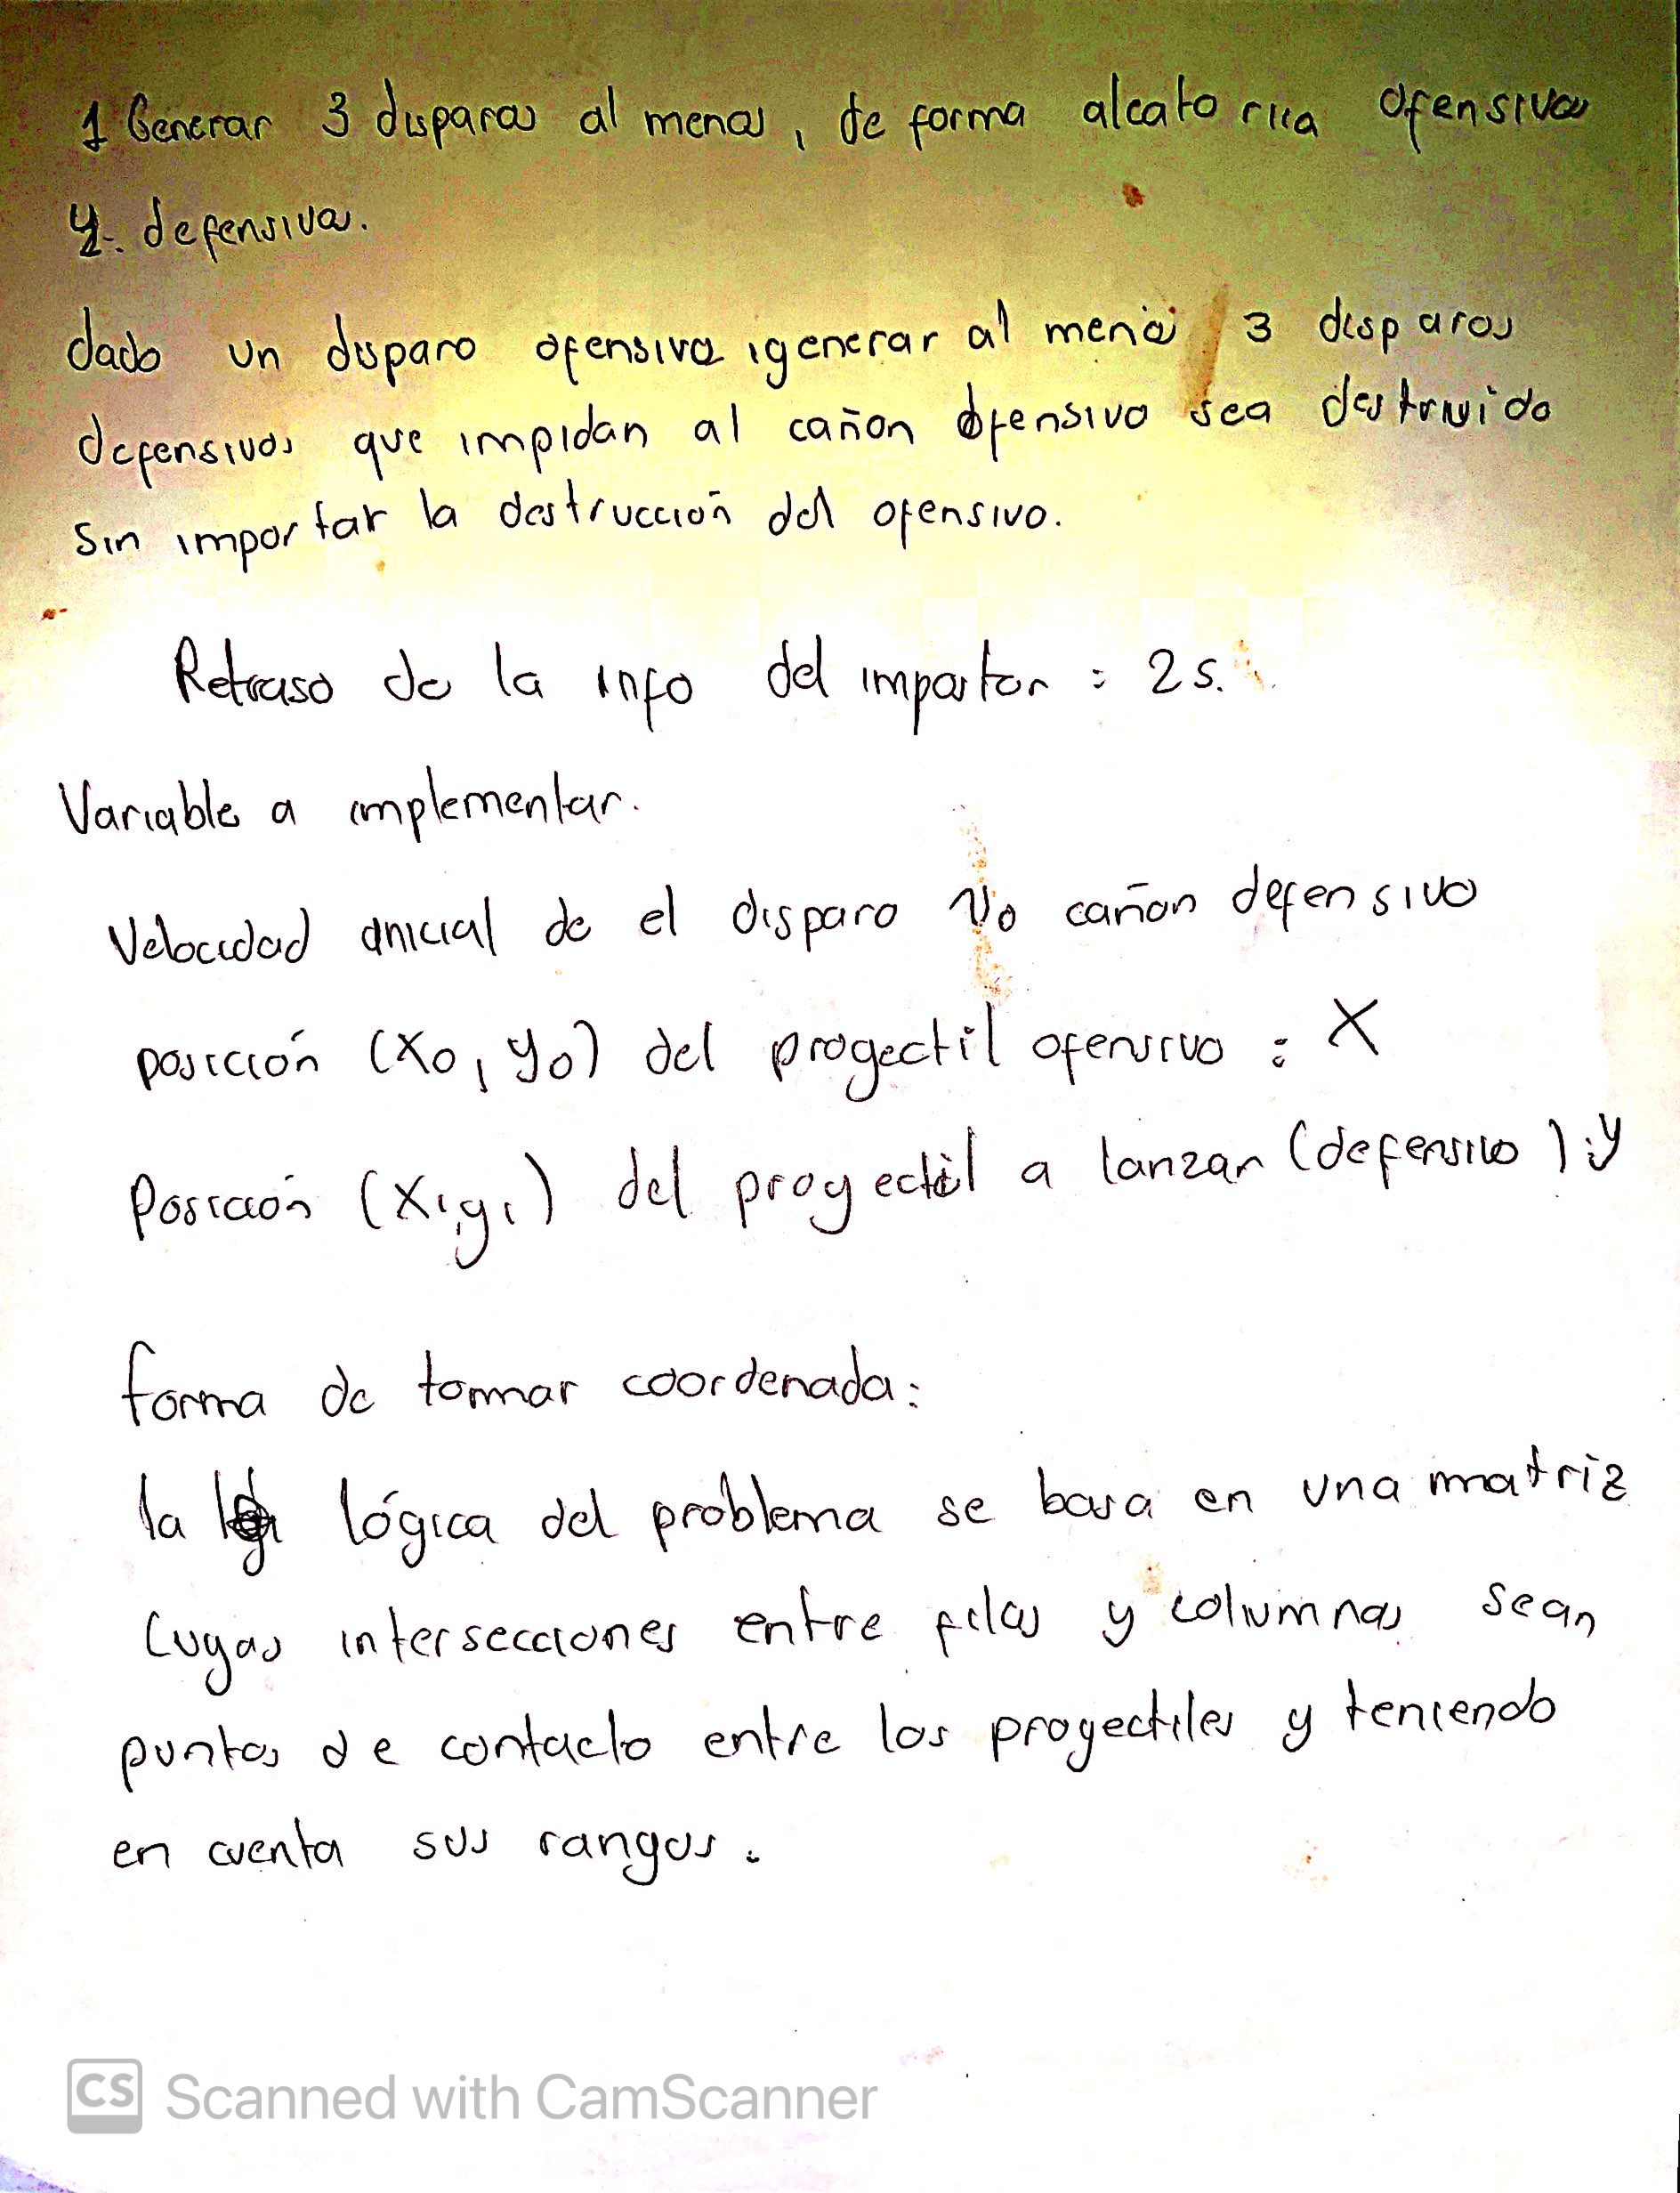 1 Generar 3 disparos al menos, de forma aleatoriia ofensivos
y. defensivos.
dado un disparo ofensivo, generar al menos 3 disparos
defensivos que impidan al cañon ofensivo sea destruido
Sin importar la destrucción del ofensivo.
Retraso de la info del impostor : 2s.
Variable a implementar.
Velocidad inicial de el disparo Vo cañon defensivo
posición (Xo, yo) del progectil ofensivo : X
Posición (X1,y1) del proyectil a lanzar (defensivo) : y
forma de tommar coordenada:
la lógica del problema se basa en una matriz
Cuyas intersecciones entre filas y columnas sean
puntos de contacto entre los proyectiles y teniendo
en cuenta sus rangos.
CS Scanned with CamScanner